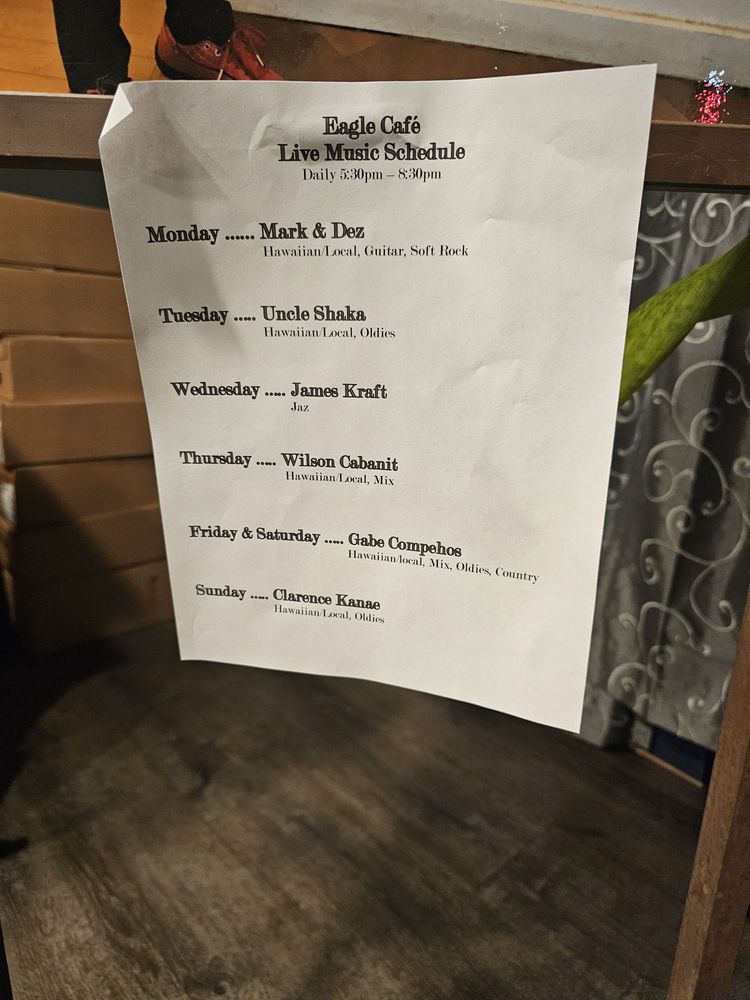 Eagle Café
Live Music Schedule
Daily 5:30pm – 8:30pm
Monday ...... Mark & Dez
Hawaiian/Local, Guitar, Soft Rock
Tuesday ..... Uncle Shaka
Hawaiian/Local, Oldies
Wednesday ..... James Kraft
Jaz
Thursday ..... Wilson Cabanit
Hawaiian/Local, Mix
Friday & Saturday ..... Gabe Compehos
Hawaiian/local, Mix, Oldies, Country
Sunday ..... Clarence Kanae
Hawaiian/Local, Oldies